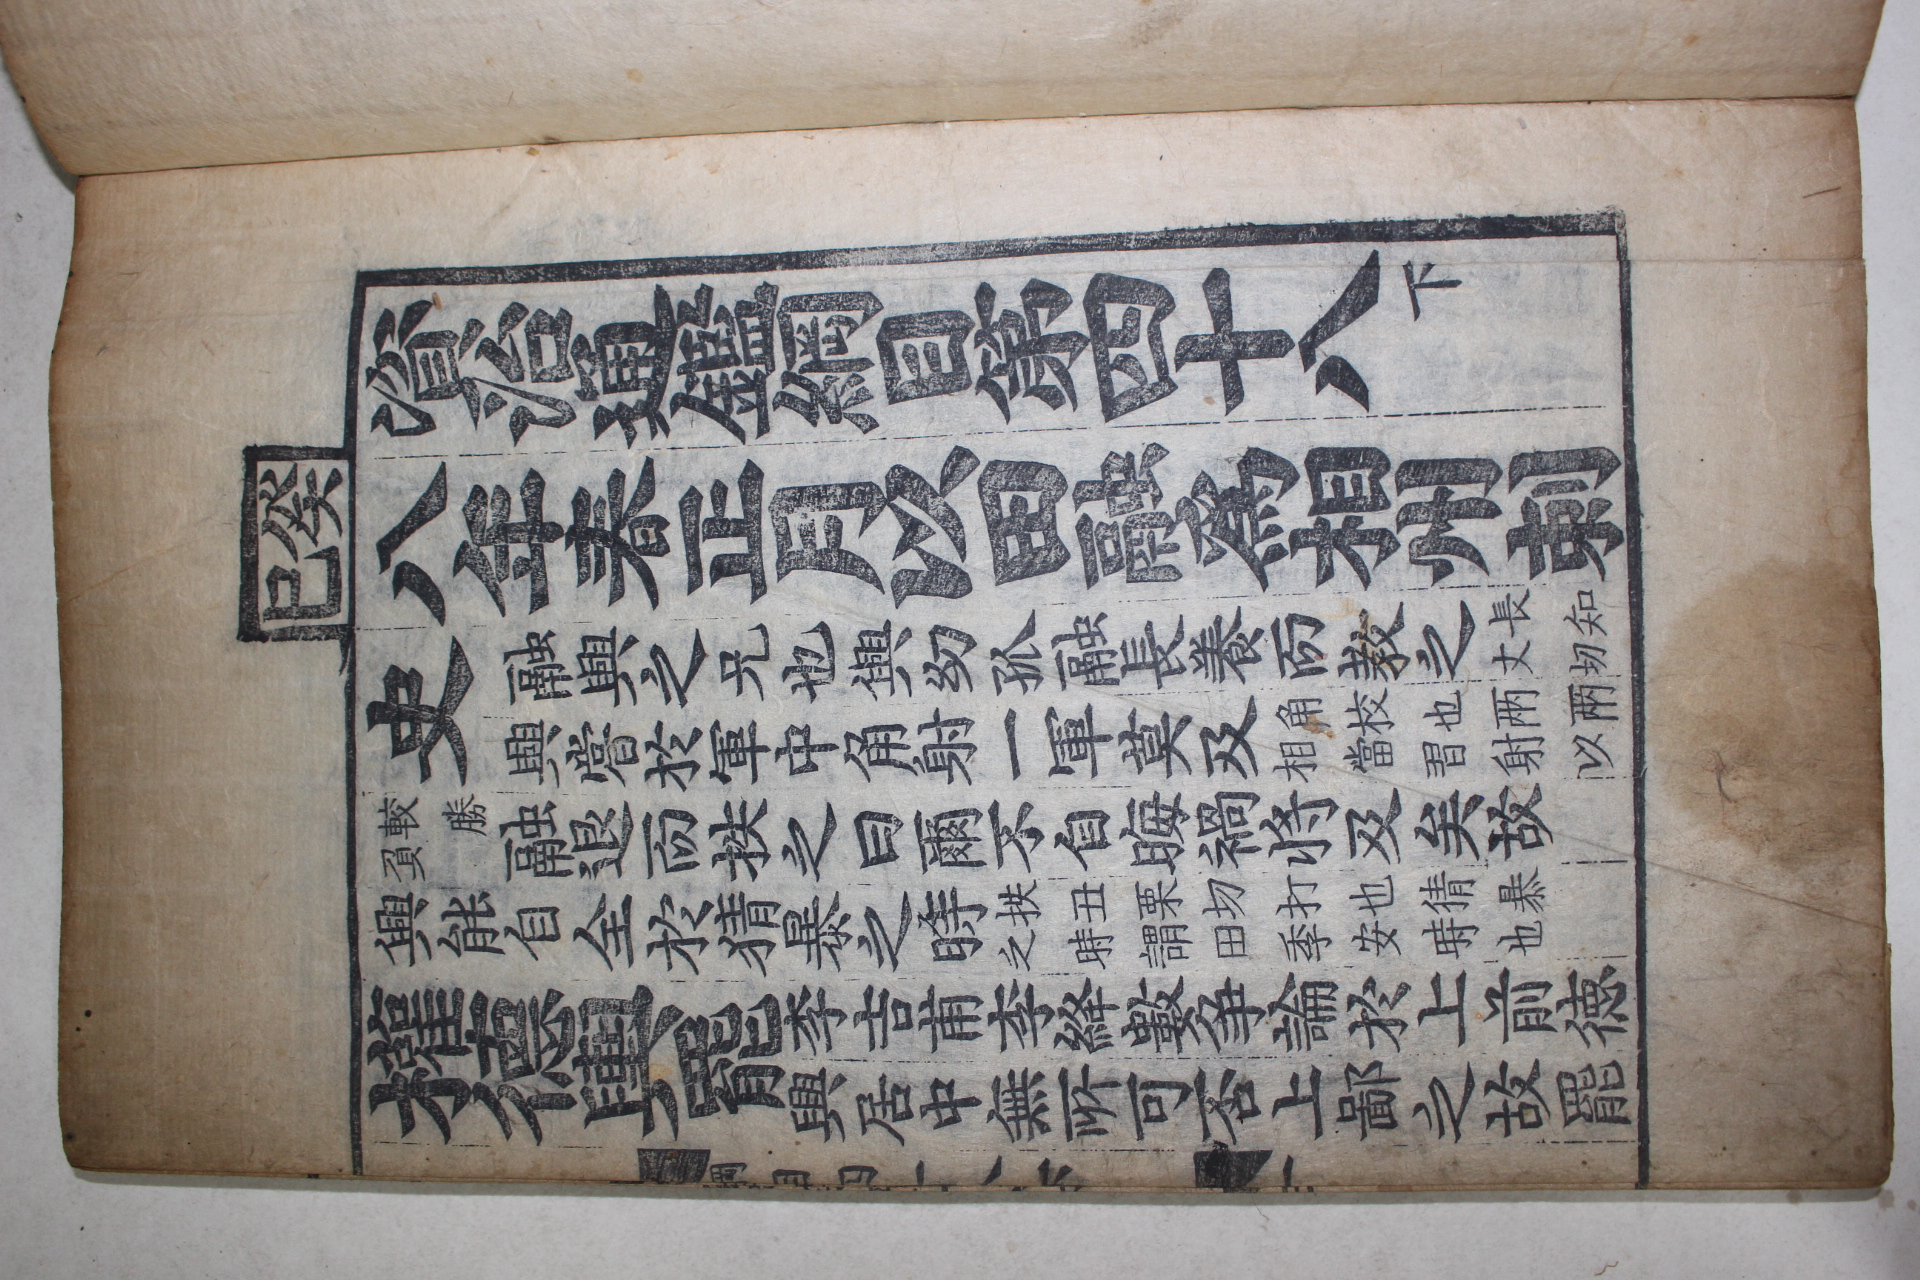 癸巳
資治通鑑綱目第四十八下
八年春正月以田融爲相州刺
史
融興之兄也興幼孤融長養而敎之
長知
丈切
興嘗於軍中角射一軍莫及
角校也兩兩
相當習射以
較勝
負
融退而抶之曰爾不自晦禍將及矣故
興能自全於猜暴之時
抶丑栗切打也猜暴
之時謂田季安時也
權德輿罷
李吉甫李絳數爭論於上前德
輿居中無所可否上鄙之故罷
綱目四十八下
一